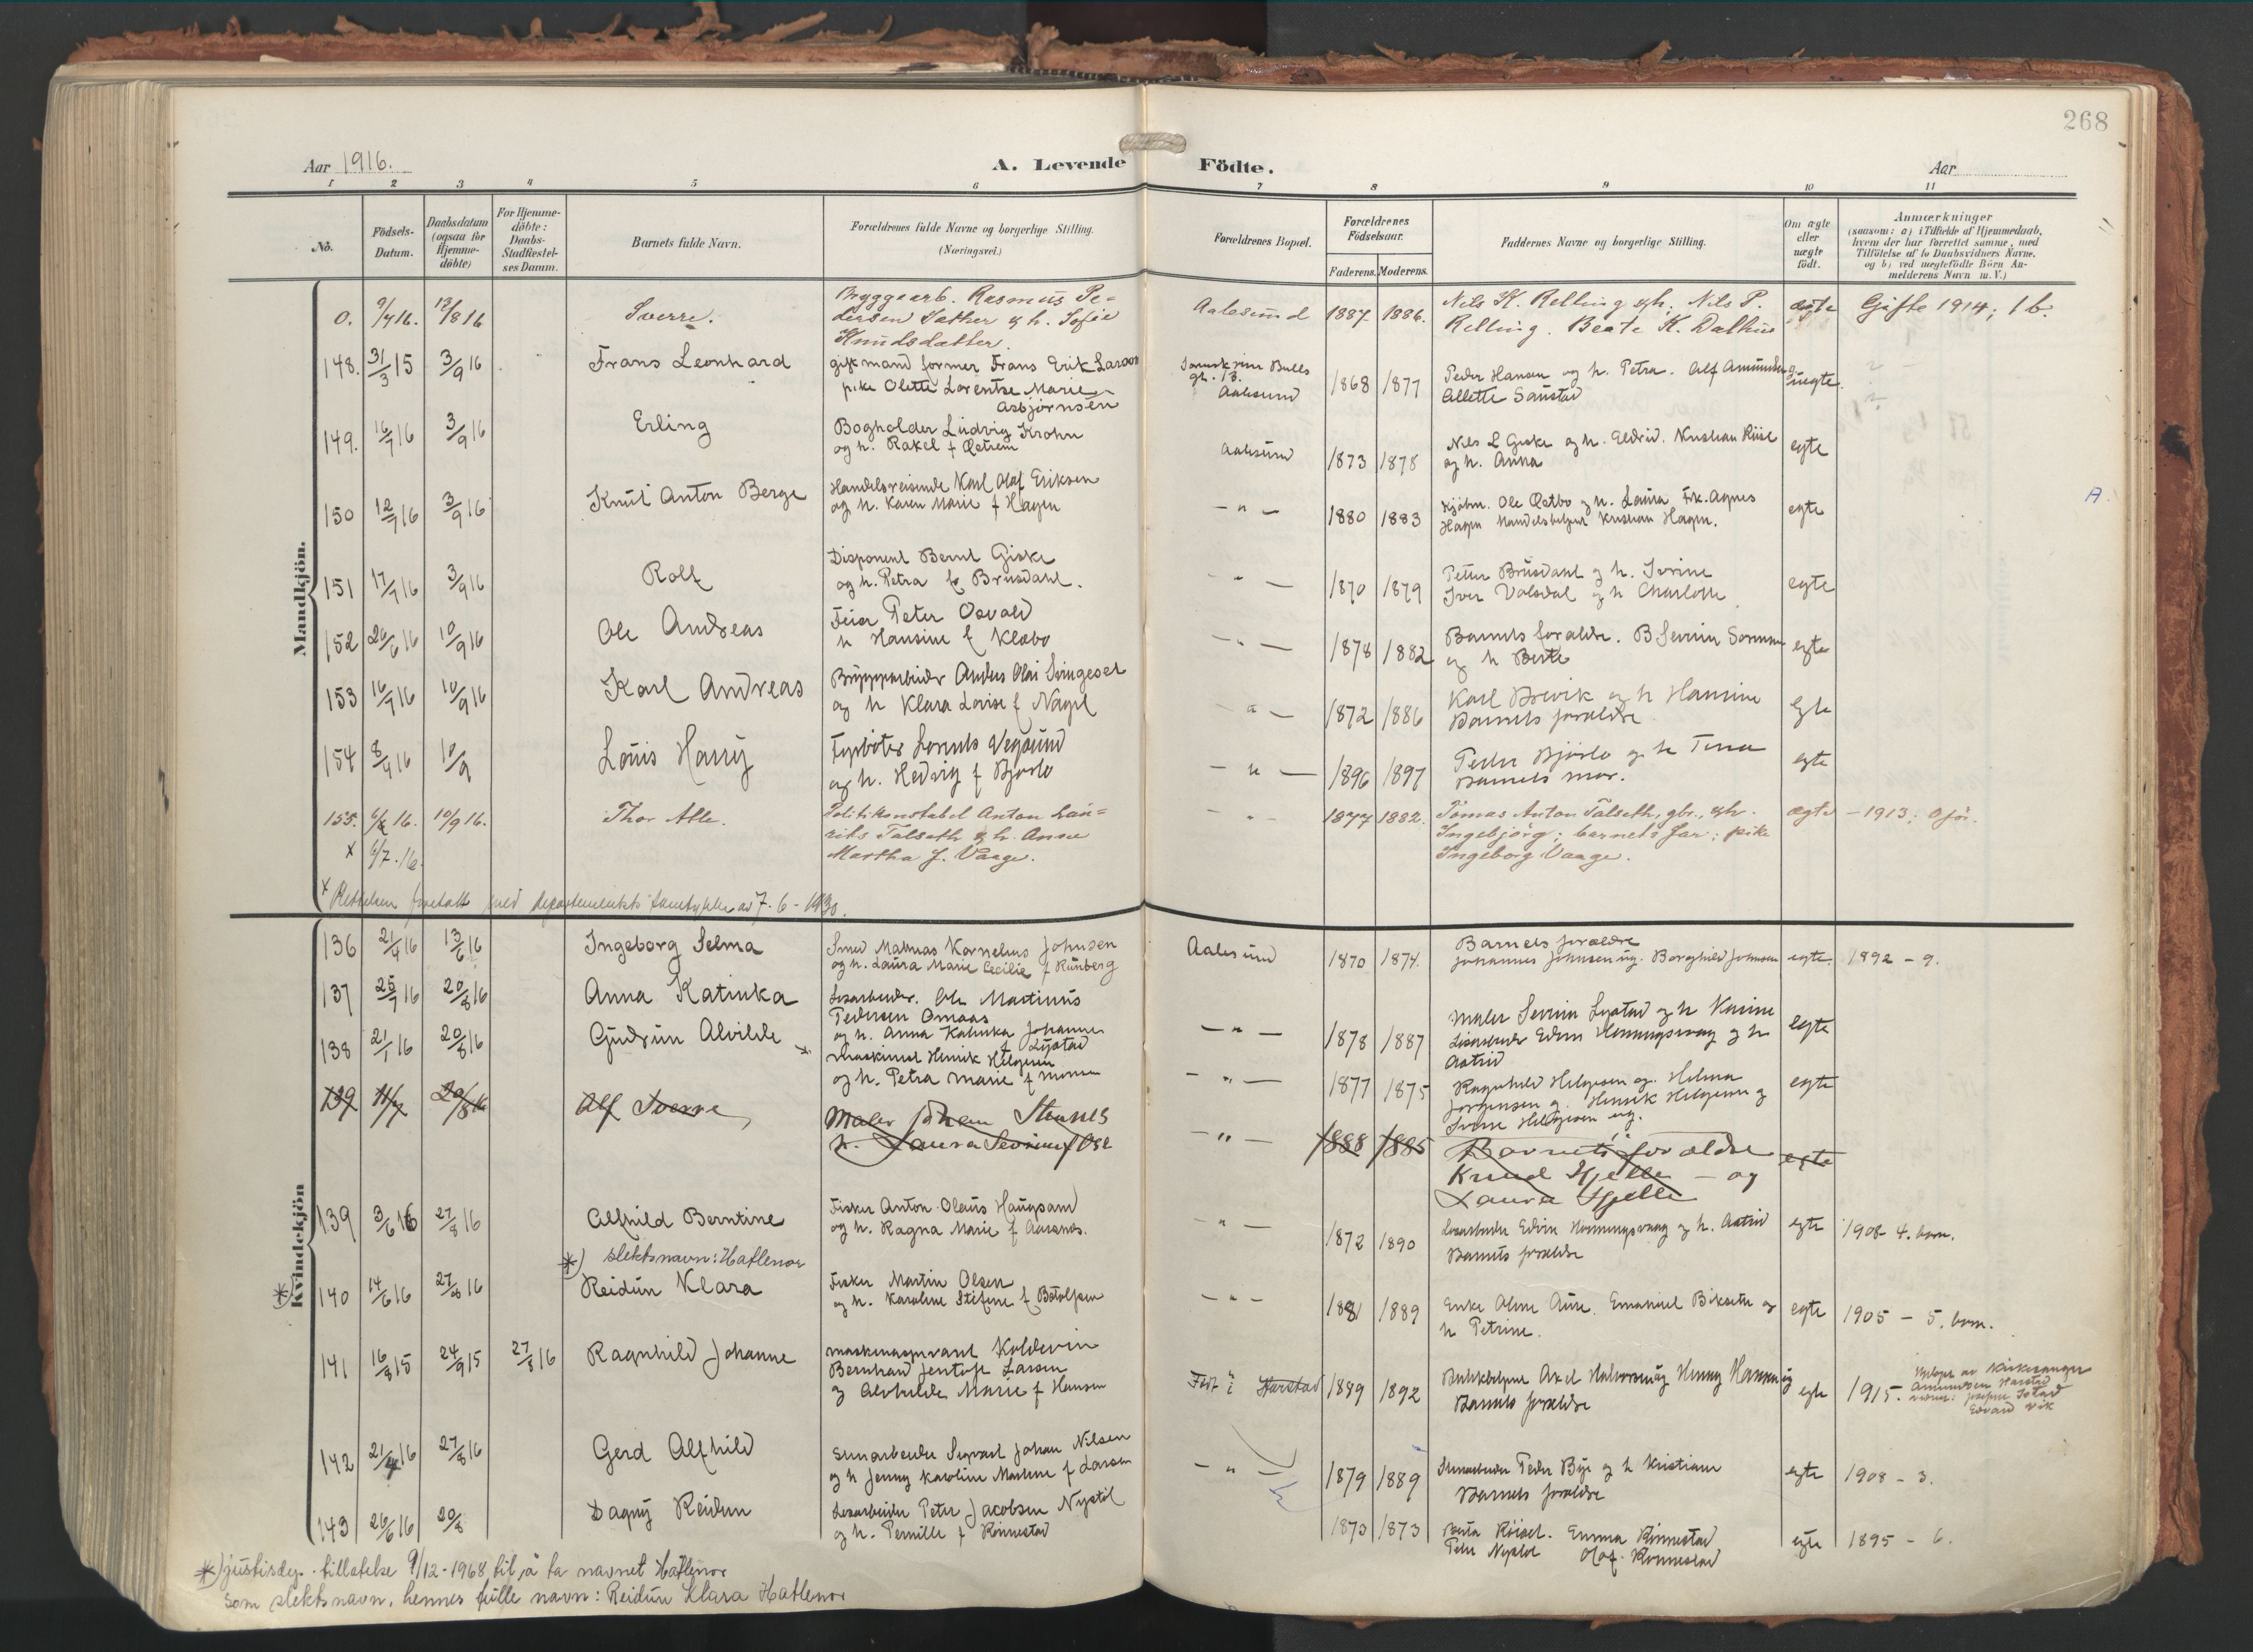 268
Aar 1916.
A. Levende Födte.
Aar
1 2 3 4 5 6 7 8 9 10 11
No.
Födsels-Datum.
Daabsdatum (ogsaa for Hjemme-döbte)
For Hjemme-döbte: Daabs-Stadfæstel-ses Datum.
Barnets fulde Navn.
Forældrenes fulde Navne og borgerlige Stilling. (Næringsvei.)
Forældrenes Bopæl.
Forældrenes Födselsaar.
Faderens. Moderens.
Faddernes Navne og borgerlige Stilling.
Om ægte eller uægte födt.
Anmærkninger
(saasom: a) i Tilfælde af Hjemmedaab, hvem der har forrettet samme, med Tilföielse af to Daabsvidners Navne. og b) ved uægtefödte Börn An-melderens Navn m. V.)
Mandkjön.
0. 9/7 16. 13/8 16 Sverre.
Bryggearb. Rasmus Pe-
dersen Sæther & h. Sofie
Knudsdatter.
Aalesund 1887 1886.
Nils K. Relling & h. Nils P.
Relling. Beate K. Dalhus
ægte Gifte 1914; 1 b.
148. 31/3 15 3/9 16 Frans Leonhard
gift mand former Frans Erik Larson
pike Olette Lorentse Marie
Asbjørnsen
Bulls gt. 13.
Aalesund 1868 1877
Peder Hansen og h. Petra. Alf Amundsen
Allette Sanstad
uegte.
149. 16/7 16 3/9 16 Erling
Bogholder Ludvig Krohn
og h. Rakel f Østrem
Aalesund 1873 1878
Nils L Giske og h. Eldrid. Kristian Riise
og h. Anna
egte
150 12/7 16 3/9 16 Knut Anton Berge
Handelsreisende Karl Olaf Eriksen
og h. Karen Marie f Hagen
- " - 1880 1883
Kjøbm. Ole Østbø og h. Laura Frk. Agnes
Hagen Handelsbetjent Kristian Hagen.
egte
A.
151 17/7 16 3/9 16 Rolf
Disponent Bernt Giske
og h. Petra f. Brusdahl.
- " - 1870 1879
Petter Brusdahl og h. Ivrine
Iver Valsdal og h Charlotte
egte
152 26/6 16 10/9 16 Ole Andreas
Feier Peter Osvald
h Hansine f Klæbo
- " - 1878 1882
Barnets forældre. B Severin Sorman
og h Berte
egte
153 16/7 16 10/9 16 Karl Andreas
Bryggearbeider Anders Olai Svingeset
og h Klara Lovise f Nagel
- " - 1872 1886
Karl Brevik og h Hansine
Barnets forældre
Egte
154 8/4 16 10/9 Louis Harry
Fyrbøter Vegsund
og h. Hedvig f Bjørlo
- " - 1896 1897
Peder Bjørlo og h Tina
Barnets mor.
egte
155. 6/8 16. 10/9 16. Thor Atle.
Politikonstabel Anton Lau-
rits Talseth & h. Anne
Martha f. Vaage.
- " - 1877 1882.
Tomas Anton Talseth, gbr., & h.
Ingebjörg; barnets far; pike
Ingeborg Vaage.
ægte - 1913; 0 för.
x 6/7. 16.
x Rettelsen foretatt med departementets samtykke av 7-6-1930.
Kvindekjön
136 21/4 16 13/6 16 Ingeborg Selma
Smed Mathias Kornelius Johnsen
og h. Laura Marie Cecilie f Runberg
Aalesund 1870 1874.
Barnets forældre
Johannes Johnsen ug. Borghild Johnsen
egte. 1892 - 9.
137 25/7 16 20/8 16 Anna Katinka
Løsarbeider. Ole Martinus
Pedersen Omaas
og h. Anna Katinka Johanne
f Lystad
- " - 1878 1887
Maler Severin Lystad og h Karine
Løsarbeider Edvin Henningsvaag og h
Astrid
egte
138 21/1 16 20/8 16 Gudrun Alvilde
Maskinist Henrik Helgesen
og h. Petra Marie f Monsen
- " - 1877 1875
Ragnhild Helgesen og. Helma
Jørgensen g. Henrik Helgesen g
Sverre Helgesen ug.
egte
139 11/7 20/8 16 Alf Sverre
Maler Johan Stennes
h. Laura Severine f Ose
- " - 1888 1885
Barnets forældre
Knud Hjelle - og
Laura Hjelle
egte
139 3/6 16 27/8 16 Alfhild Berntine
Fisker Anton Olaus Haugsand
og h. Ragna Marie f Aarsnes.
- " - 1872 1890
Løsarbeider Edvin Henningsvaag og h. Astrid
Barnets forældre
egte 1908 4. barn.
*) slektsnavn: Hatlenor
*) 140 14/6 16 27/8 16 Reidun Klara
Fisker Martin Olsen
og h. Karoline Stefine f Botolfsen
- " - 1881 1889
Enke Oline Aure. Emanuel Bikseth og
h Petrine.
egte 1905 - 5. barn.
141 16/8 15 24/9 15 27/8 16 Ragnhild Johanne
Maskinaspirant Koldevin
Bernhard Jentoft Larsen
og Alvhilde Marie f Hansen
Født i Harstad 1889 1892
Axel Halvorsen ug Henny Hansen ug
Barnets forældre
egte 1915.
Hjdøpt av Kirkesanger
Amundsen Harstad
Edvard Vik
142 21/4 16 27/8 16 Gerd Alfhild
Stenarbeider Sigvart Johan Nilsen
og h Jenny Karoline Marline f Larsen
- " - 1879 1889
Stenarbeider Peder Bye og h Kristiane
Barnets forældre
egte 1908 - 3.
143 26/6 16 20/8 Dagny Reidun
Løsarbeider Peter Jacobsen Nystøl
og h. Pernille f Rønnestad
1873 1873
Berta Röiset. Emma Rønnestad
Peder Nystøl Olaf. Rønnestad
egte 1895 - 6.
*) justisdep. tillatelse 9/12-1968 til å ta navnet Hatlenor
som slektsnavn, hennes fulle navn: Reidun Klara Hatlenor